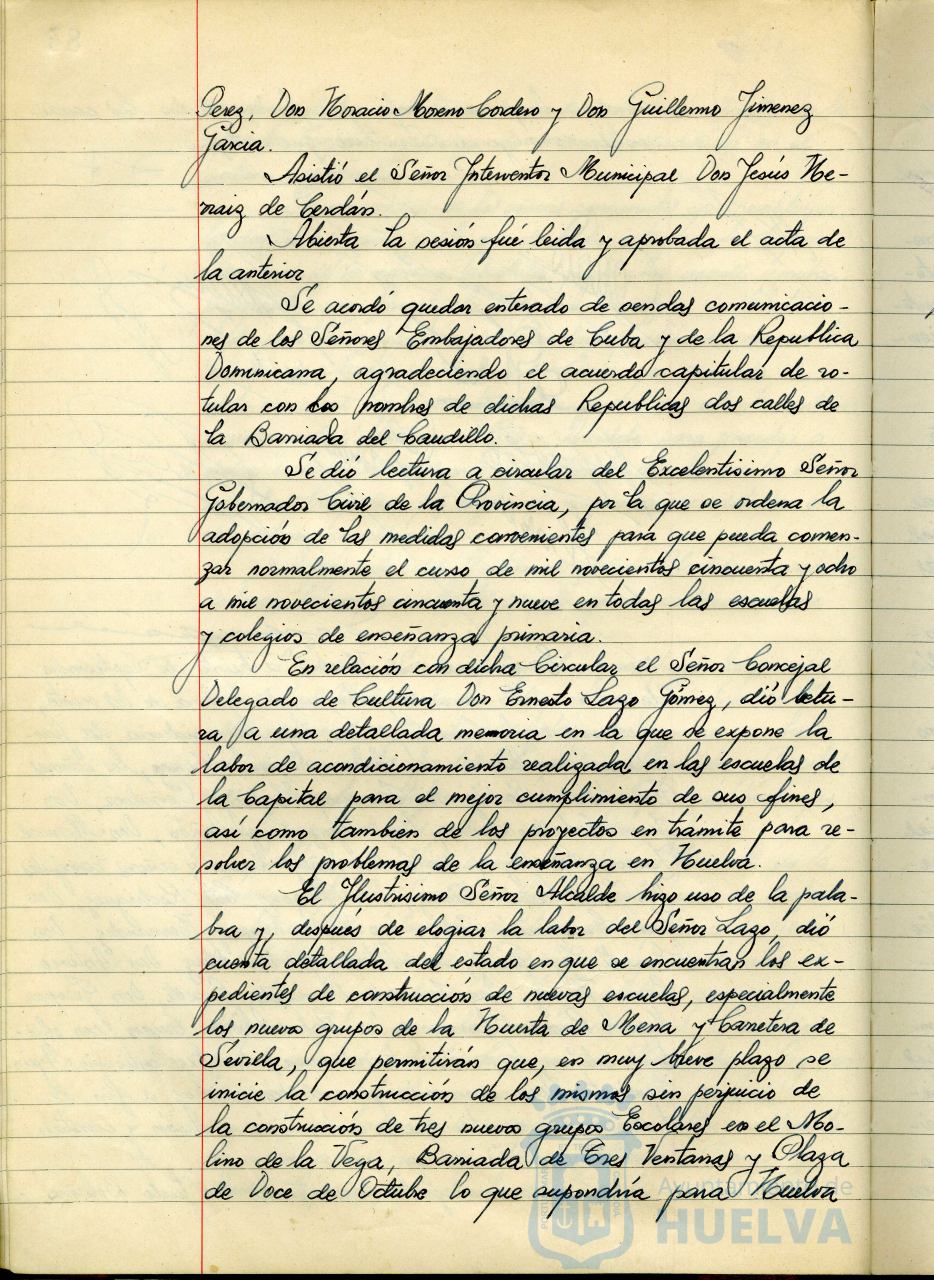 Perez, Don Horacio Moreno Cordero y Don Guillermo Jimenez
Garcia.
Asistió el Señor Interventor Municipal Don Jesús He-
rraiz de Cerdán.
Abierta la sesión fué leida y aprobada el acta de
la anterior
Se acordó quedar enterado de sendas comunicacio-
nes de los Señores Embajadores de Cuba y de la Republica
Dominicana, agradeciendo el acuerdo capitular de ro-
tular con los nombres de dichas Republicas dos calles de
la Barriada del Caudillo.
Se dió lectura a circular del Excelentisimo Señor
Gobernador Civil de la Provincia, por la que se ordena la
adopción de las medidas convenientes para que pueda comen-
zar normalmente el curso de mil novecientos cincuenta y ocho
a mil novecientos cincuenta y nueve en todas las escuelas
y colegios de enseñanza primaria.
En relación con dicha Circular el Señor Concejal
Delegado de Cultura Don Ernesto Lazo Gómez, dió lectu-
ra a una detallada memoria en la que se expone la
labor de acondicionamiento realizada en las escuelas de
la Capital para el mejor cumplimiento de sus fines,
así como tambien de los proyectos en trámite para re-
solver los problemas de la enseñanza en Huelva.
El Ilustrisimo Señor Alcalde hizo uso de la pala-
bra y, después de elogiar la labor del Señor Lazo, dió
cuenta detallada del estado en que se encuentran los ex-
pedientes de construcción de nuevas escuelas, especialmente
los nuevos grupos de la Huerta de Mena y Carretera de
Sevilla, que permitirán que, en muy breve plazo se
inicie la construcción de los mismos sin perjuicio de
la construcción de tres nuevos grupos Escolares en el Mo-
lino de la Vega, Barriada de Tres Ventanas y Plaza
de Doce de Octubre lo que supondría para Huelva
Ayuntamiento de
HUELVA